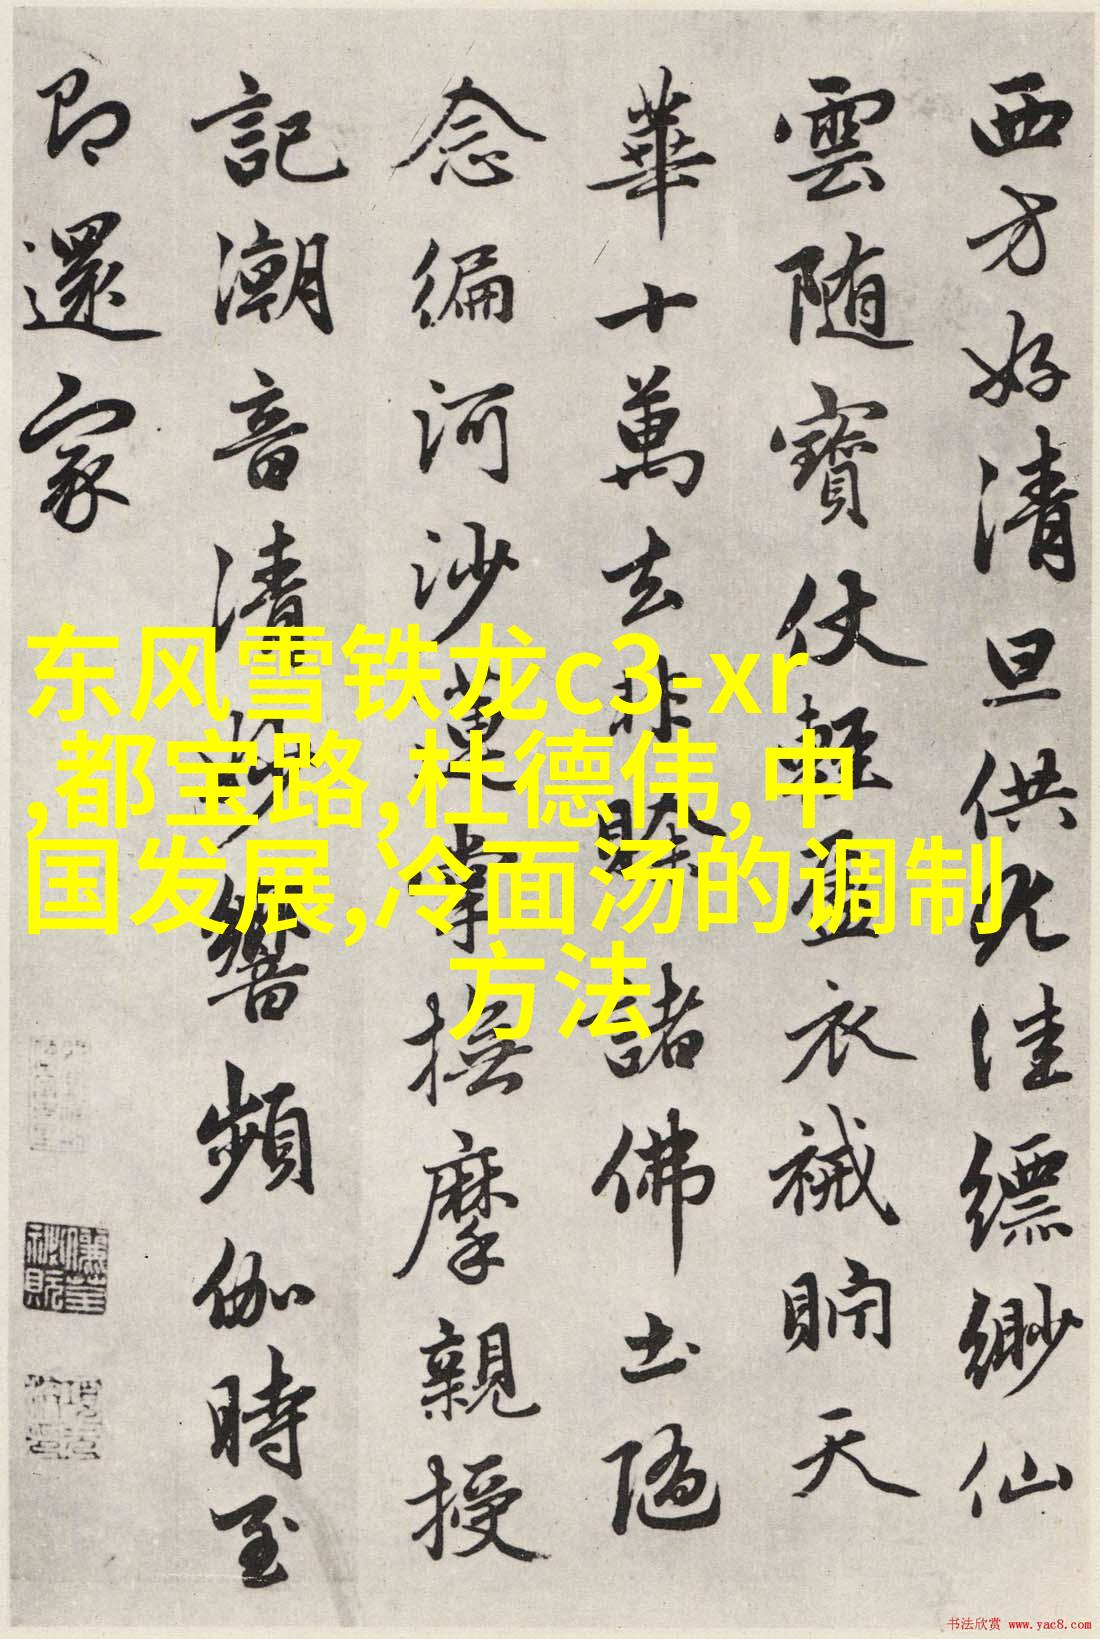 西方好清旦供尤佳縹緲仙
雲随寶仗輕盈衣裓貯天
華十萬去非賒諸佛土隨
念編河沙蓮掌撫摩親授
記潮音清妙響頻伽時至
即還家
东风雪铁龙c3-xr
,都宝路,杜德伟,中
国发展,冷面汤的调制
方法
书法欣赏 www.yac8.com